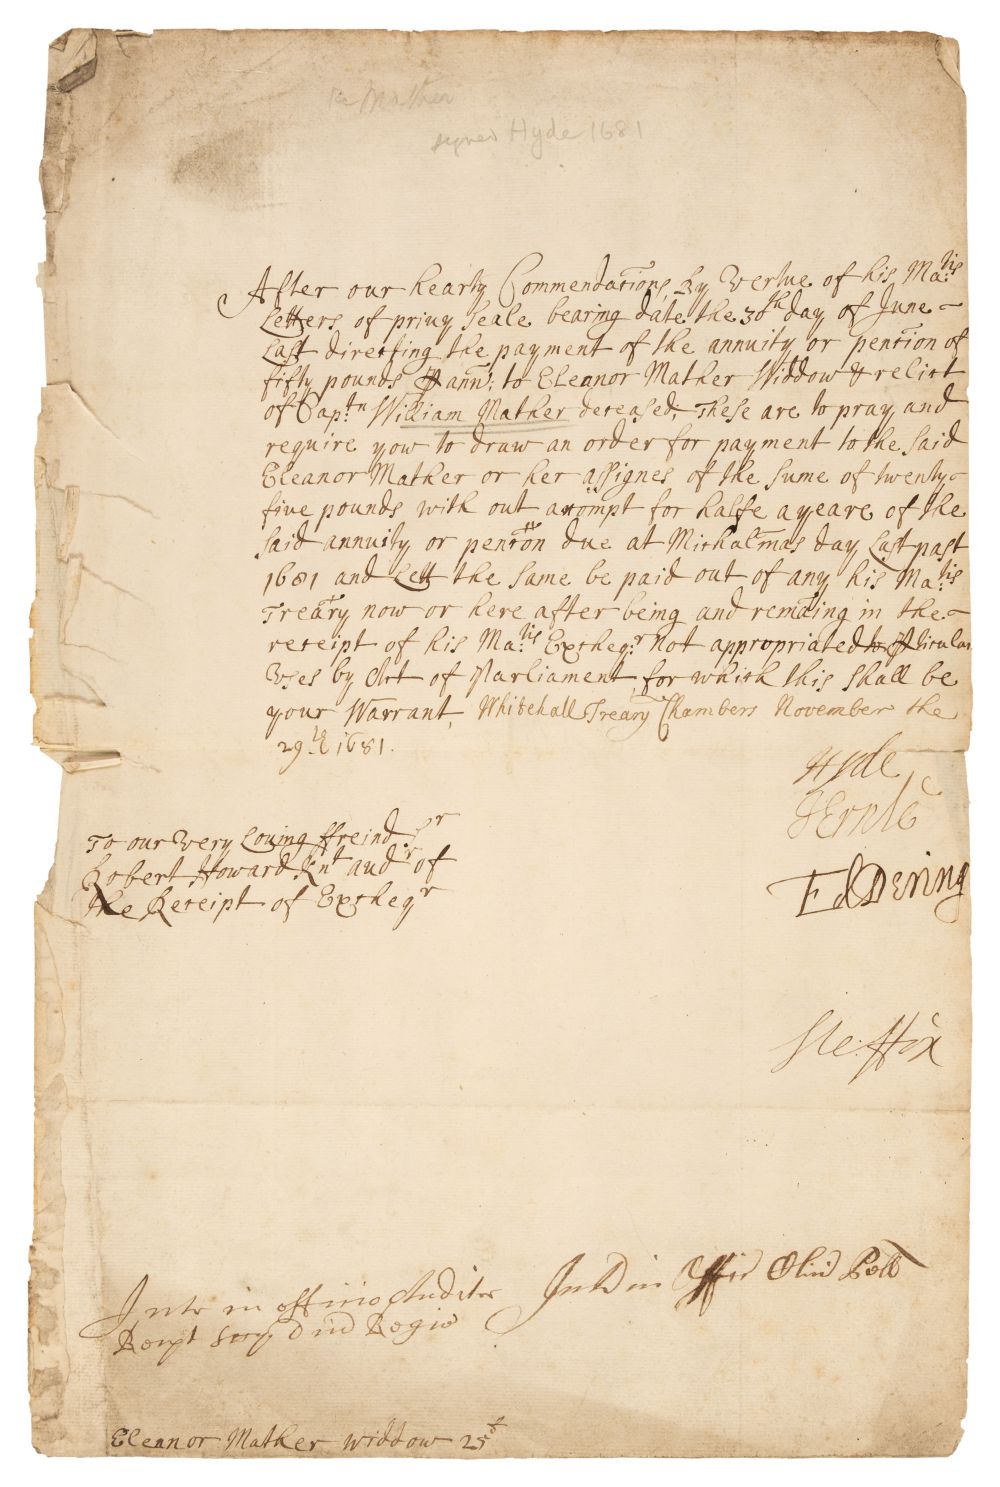 re Mather
signed Hyde 1681
After our hearty Commendations, By Vertue of his Ma:tis
Letters of privy Seale bearing date the 30th day of June
Last directing the payment of the annuity or pencion of
fifty pounds P ann: to Eleanor Mather Widdow & relict
of Cap:tn William Mather deceased, These are to pray and
require yow to draw an order for payment to the said
Eleanor Mather or her assignes of the sume of twenty
five pounds with out accompt for halfe a yeare of the
said annuity or pencon due at Michalmas day Last past
1681 and Lett the same be paid out of any his Ma:tis
Treary now or here after being and remaing in the
receipt of his Ma:tis Excheq:r not appropriated to Pticular
Vses by Act of Parliament for which this shall be
your Warrant, Whitehall Treary Chambers November the
29:th 1681.
Hyde
JErnle
Ed Dering
Ste: ffox
To our Very Loving ffreind Sr
Robert Howard Knt audr of
the Receipt of Exchegr
Intr in officio Auditor
Recept Dni Regis
in Offic Pell
Eleanor Mather widdow 25£